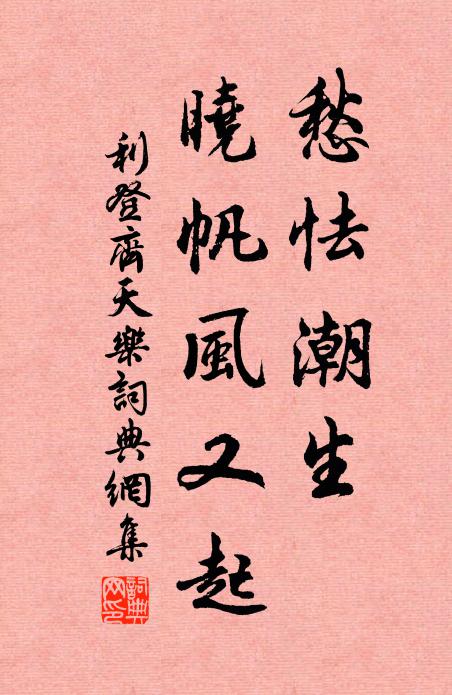 愁怯潮生
曉帆風又起
利登齊天樂詞典網集
詞典
网印